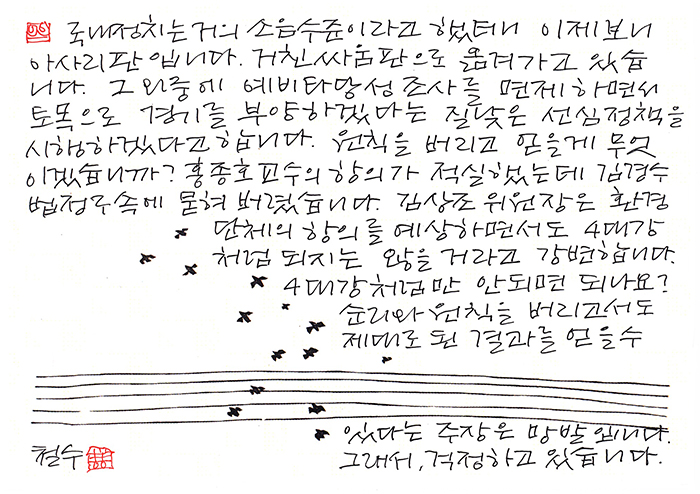 국내정치는 거의 소음수준이라고 했더니 이제보니
아사리판입니다. 거친 싸움판으로 옮겨가고 있습
니다. 그 와중에 예비타당성조사를 면제하면서
토목으로 경기를 부양하겠다는 질낮은 선심정책을
시행하겠다고합니다. 원칙을 버리고 얻을게 무엇
이겠습니까? 홍종호교수의 항의가 적실했는데 김경수
법정구속에 묻혀 버렸습니다. 김상조위원장은 환경
단체의 항의를 예상하면서도 4대강
처럼 되지는 않을거라고 강변합니다.
4대강처럼만 안되면 되나요?
순리와 원칙을 버리고서도
제대로 된 결과를 얻을수
있다는 주장은 망발입니다.
그래서, 걱정하고 있습니다.
철수